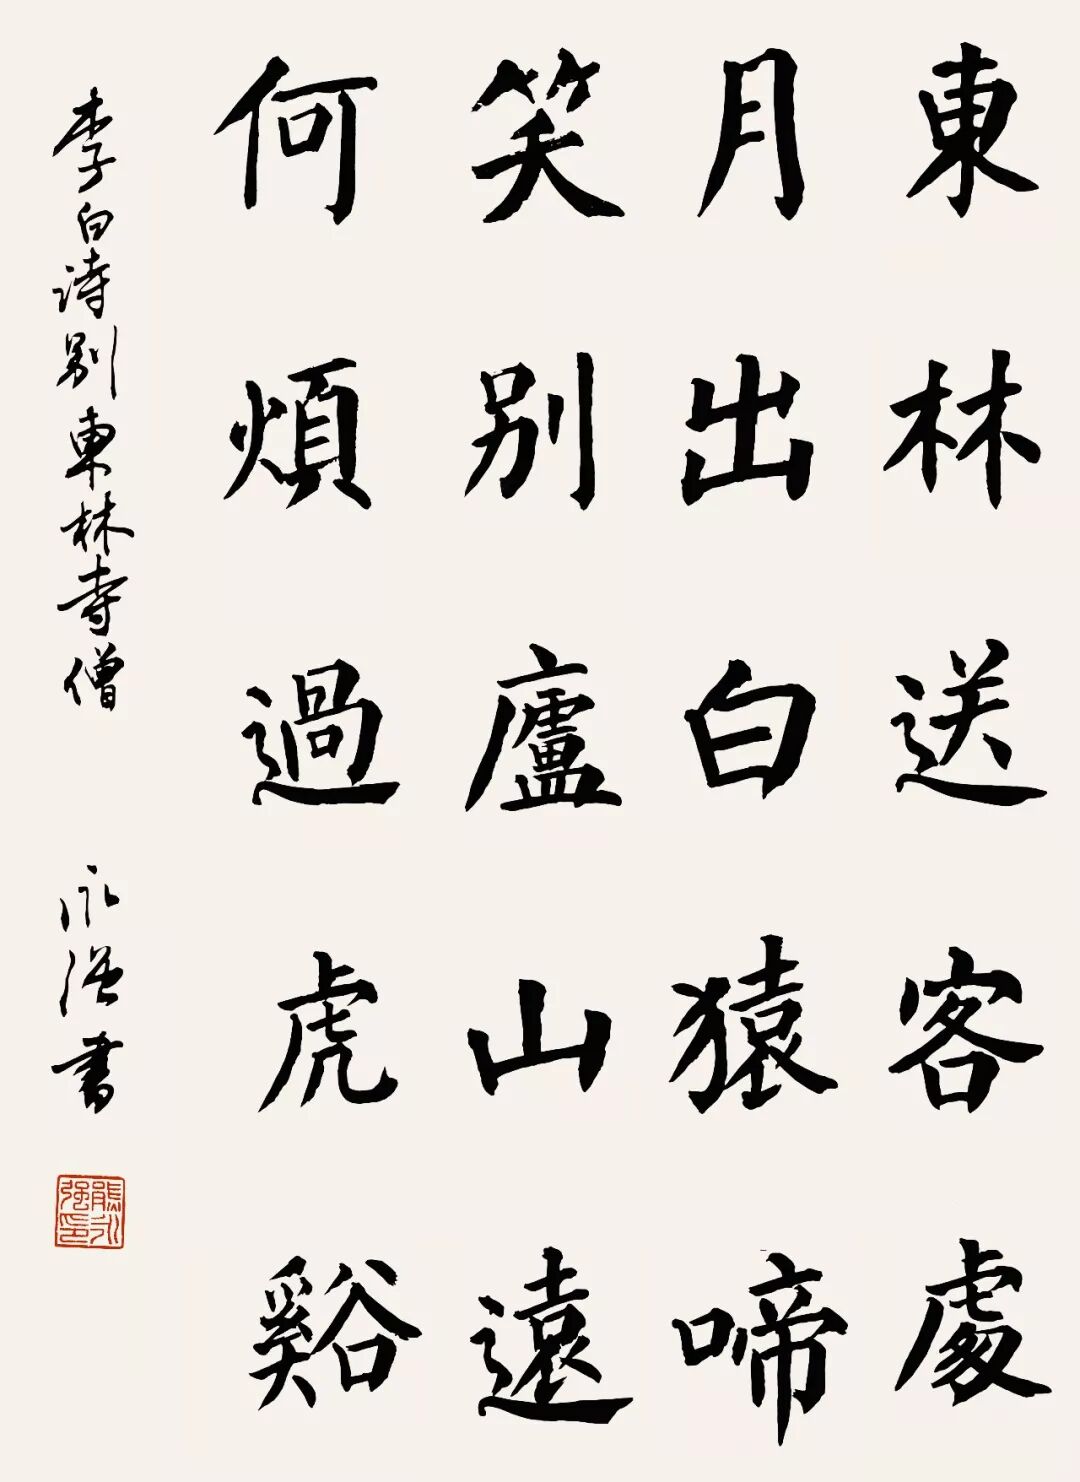 東林送客處
月出白猿啼
笑別廬山遠
何煩過虎谿
李白诗別東林寺僧
永强書
熊永强印